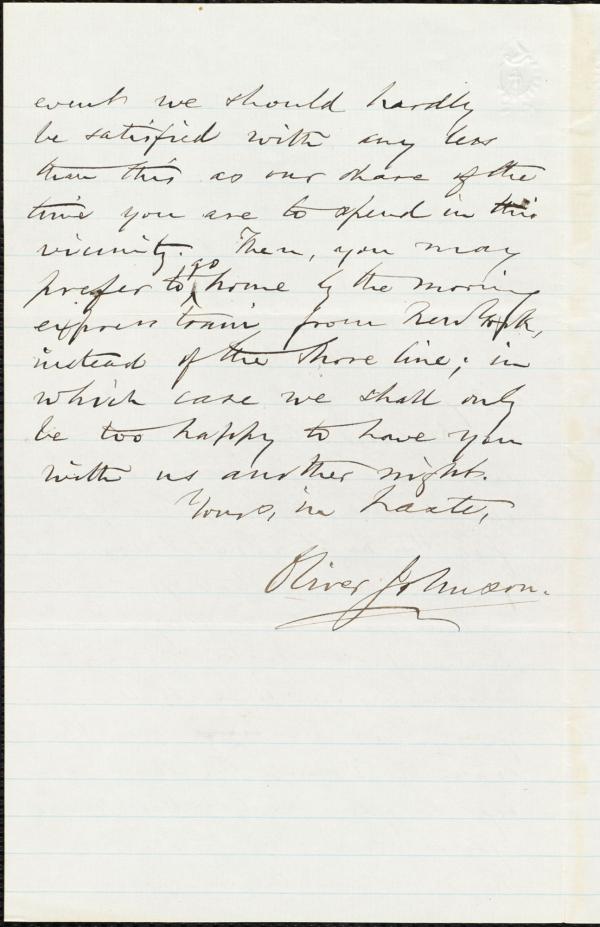 event we should hardly
be satisfied with any less
than this as our share of the
time you are to spend in this
vicinity. Then, you may
prefer to go home by the morning
express train, from New York,
instead of the Shore line; in
which case we shall only
be too happy to have you
with us another night.
Yours, in haste,
Oliver Johnson.